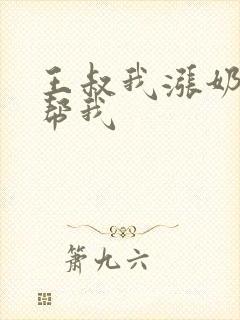 王叔我涨奶
帮我
萧九六